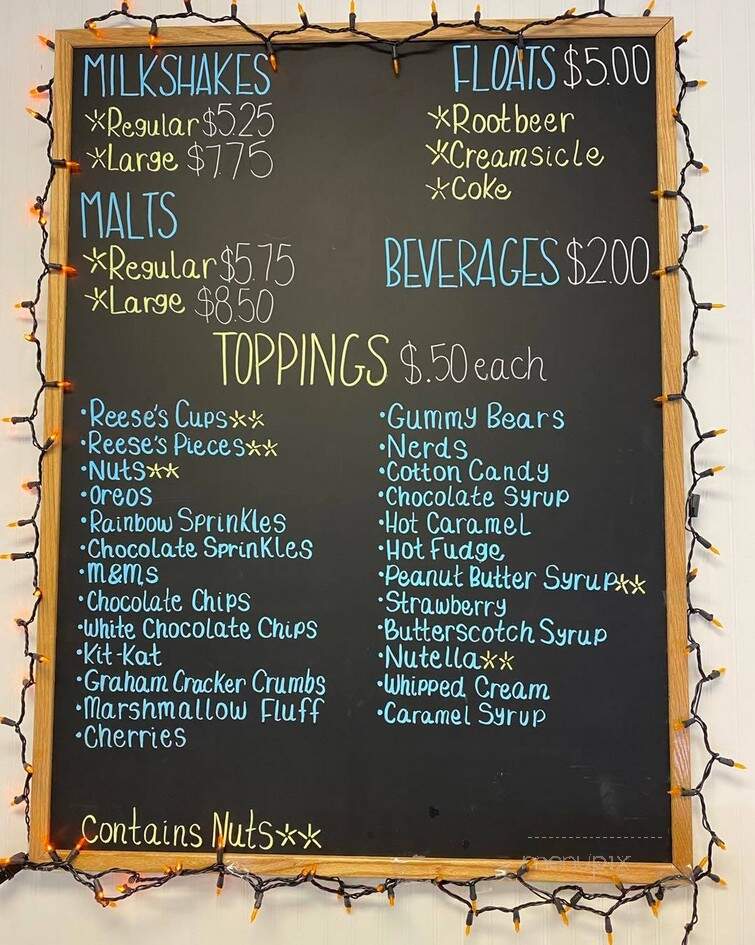 MILKSHAKES
*Regular $5.25
*Large $7.75
MALTS
*Regular $5.75
*Large $8.50
FLOATS $5.00
*Rootbeer
*Creamsicle
*Coke
BEVERAGES $2.00
TOPPINGS $.50 each
•Reese's Cups**
•Reese's Pieces**
•Nuts**
•Oreos
•Rainbow Sprinkles
•Chocolate Sprinkles
•M&M,s
•Chocolate Chips
•White Chocolate Chips
•Kit-Kat
•Graham Cracker Crumbs
•Marshmallow Fluff
•Cherries
•Gummy Bears
•Nerds
•Cotton Candy
•Chocolate Syrup
•Hot Caramel
•Hot Fudge
•Peanut Butter Syrup**
•Strawberry
•Butterscotch Syrup
•Nutella**
•Whipped Cream
•Caramel Syrup
Contains Nuts**
menupix